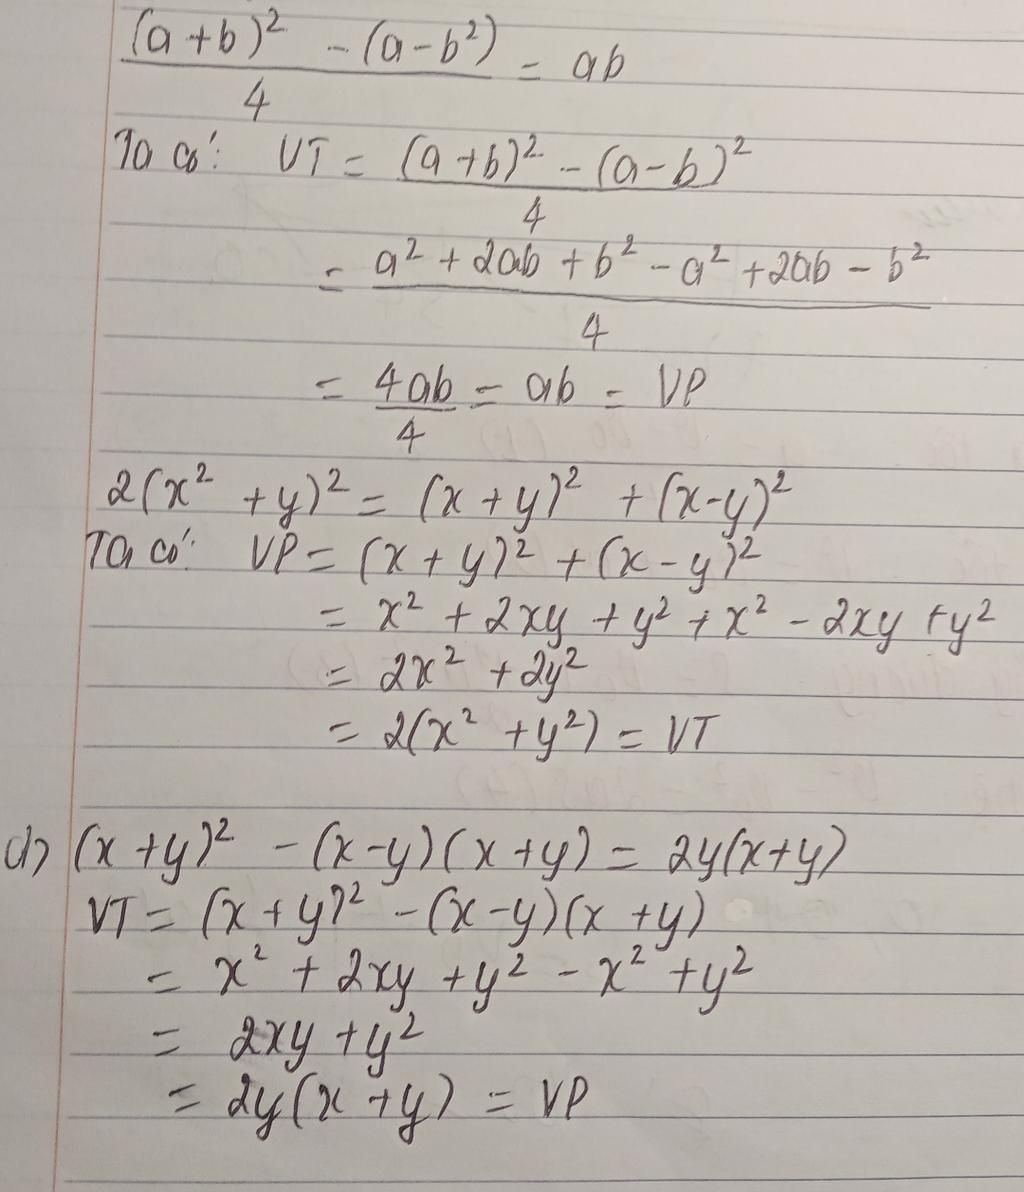 (a+b)² - (a-b²)/4 = ab
Ta có: VT = (a+b)² - (a-b)²/4
= a² + 2ab + b² - a² + 2ab - b²/4
= 4ab/4 = ab = VP
2(x² + y)² = (x+y)² + (x-y)²
Ta có: VP = (x+y)² + (x-y)²
= x² + 2xy + y² + x² - 2xy + y²
= 2x² + 2y²
= 2(x² + y²) = VT
d) (x+y)² - (x-y)(x+y) = 2y(x+y)
VT = (x+y)² - (x-y)(x+y)
= x² + 2xy + y² - x² + y²
= 2xy + y²
= 2y(x+y) = VP